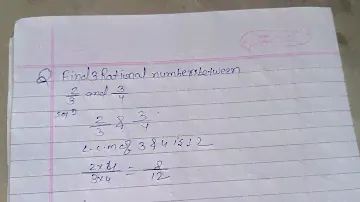 Q Find 3 Rational numbers between
2/3 and 3/4
2/3 & 3/4
L.C.M of 3 & 4 is 12
2×4/3×4 = 8/12